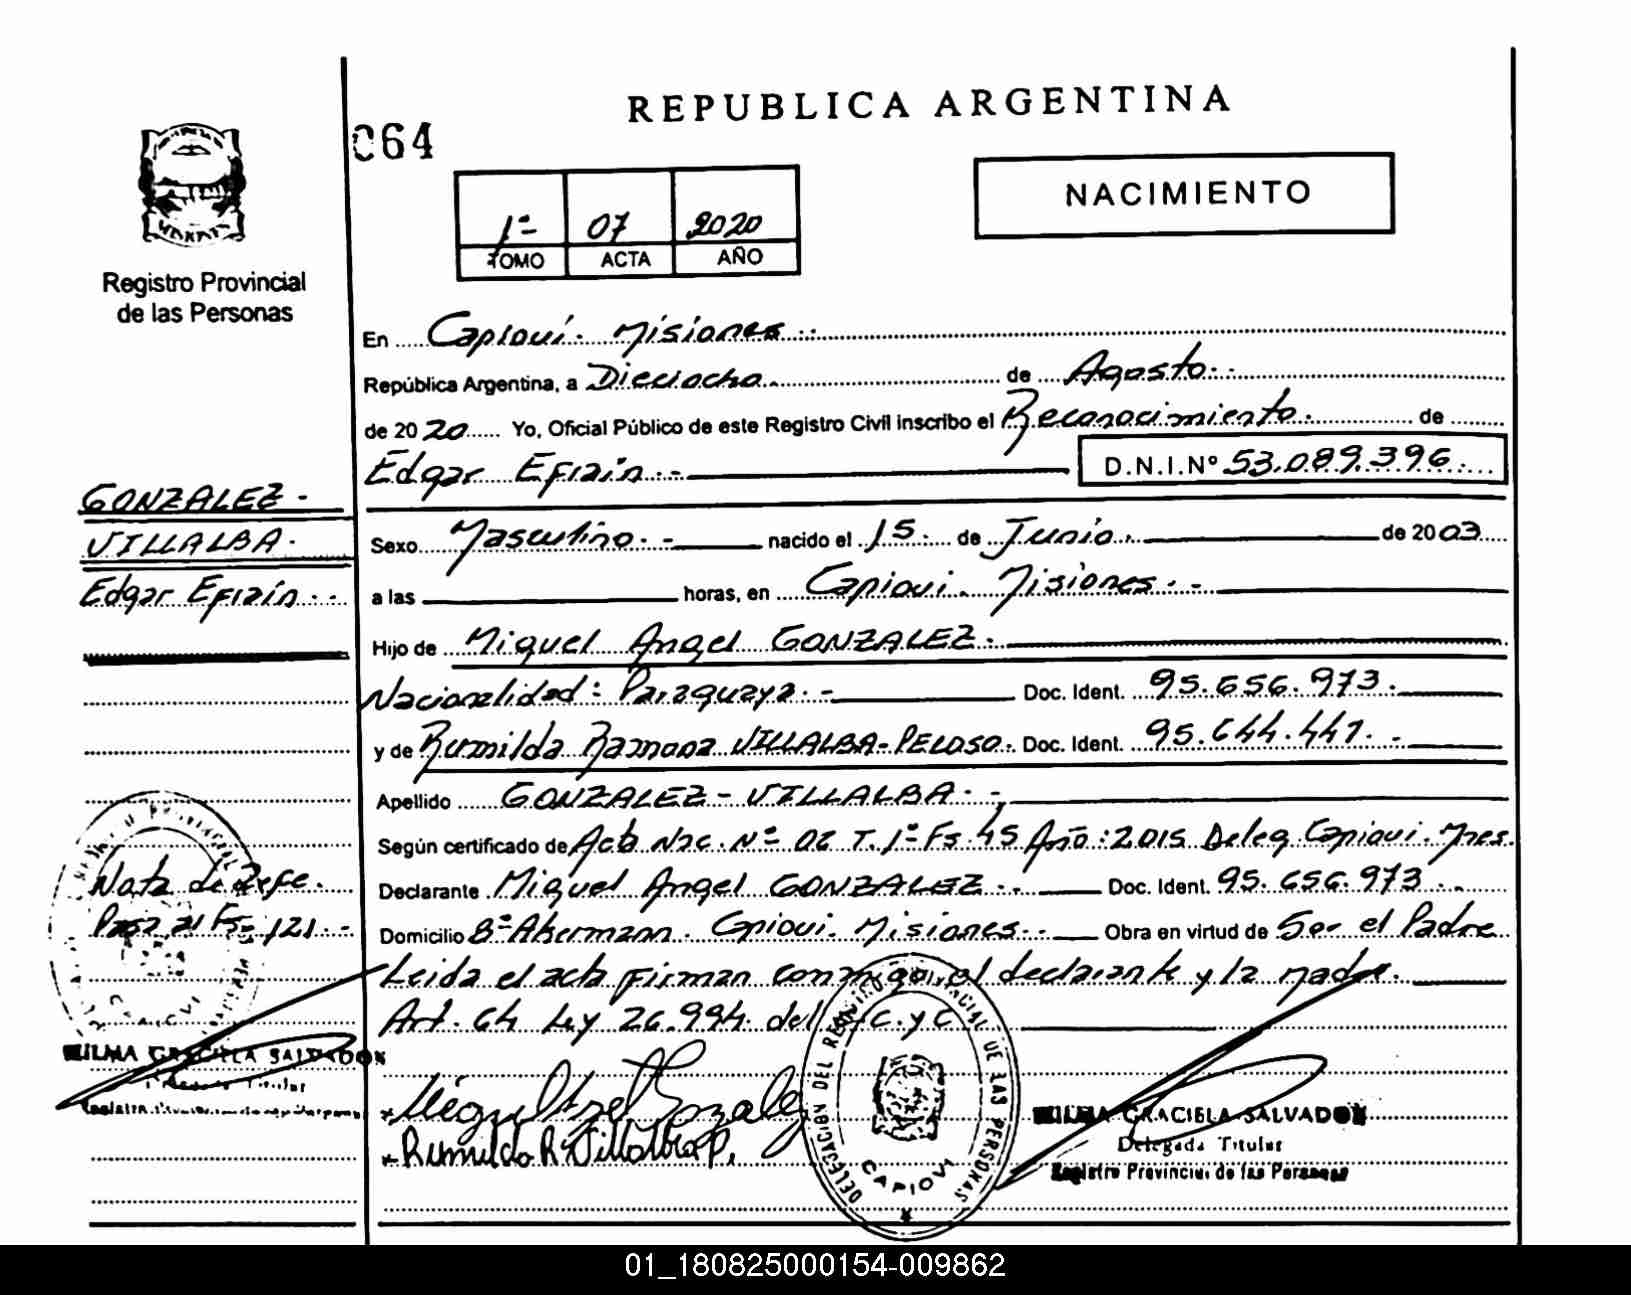 REPUBLICA ARGENTINA
064
NACIMIENTO
1º 07 2020
TOMO ACTA AÑO
Registro Provincial
de las Personas
En Capioví. Misiones
República Argentina, a Dieciocho de Agosto
de 2020 Yo, Oficial Público de este Registro Civil inscribo el Reconocimiento de
Edgar Efraín D.N.I.Nº 53.089.396
GONZALEZ
VILLALBA
Edgar Efraín
Sexo Masculino nacido el 15 de Junio de 2003
a las horas, en Capioví. Misiones
Hijo de Miguel Angel GONZALEZ
Nacionalidad: Paraguaya Doc. Ident. 95.656.973
y de Rumilda Ramona VILLALBA-PELOSO Doc. Ident. 95.644.441
Apellido GONZALEZ - VILLALBA
Según certificado de Acta Nac. Nº 02 T. 1º Fs. 45 Año: 2015 Deleg. Capioví. Mnes.
Declarante Miguel Angel GONZALEZ Doc. Ident. 95.656.973
Nota de Refe.
Pasa al Fs 121
Domicilio Bº Akermann. Capioví. Misiones Obra en virtud de Ser el Padre
Leida el acta firman conmigo el declarante y la madre.
Art. 64 Ley 26.994 del C.C. y C.
Miguel Angel Gonzalez
Rumilda R. Villalba P.
DELEGACION DEL REGISTRO PROVINCIAL DE LAS PERSONAS
CAPIOVI
WILMA GRACIELA SALVADOR
Delegada Titular
Registro Provincial de las Personas
WILMA GRACIELA SALVADOR
Delegada Titular
01_180825000154-009862